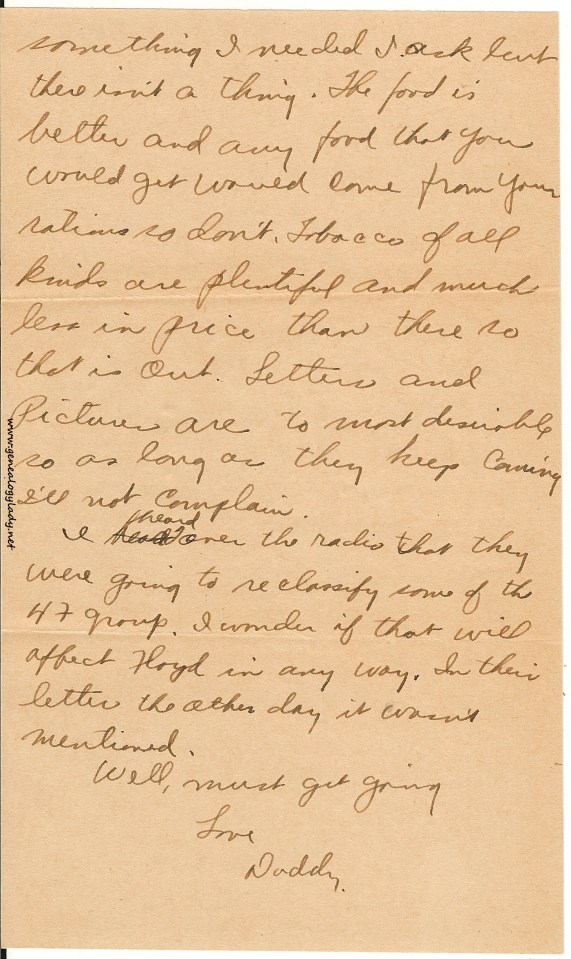 something I needed I ask but
there isn't a thing. The food is
better and any food that you
would get would come from your
rations so don't. Tobacco of all
kinds are plentiful and much
less in price than there so
that is out. Letters and
Pictures are to most desirable
so as long as they keep coming
I'll not complain.
heard
I over the radio that they
were going to reclassify some of th
47 group. I wonder if that will
affect Floyd in any way. In their
letter the other day it wasn't
mentioned.
Well, must get going
Love
Daddy.
www.genealogylady.net